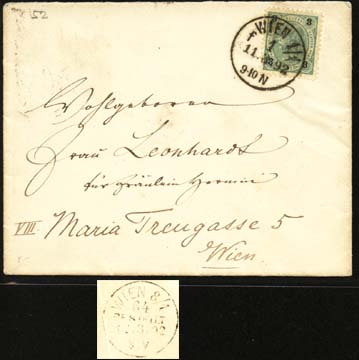 52
WIEN 1/1
11. 92
9-10 N
3
3
Wohlgeboren
Frau Leonhardt
für Fräulein Hermini
VIII. Maria Treugasse 5
Wien.
WIEN 8/1
64